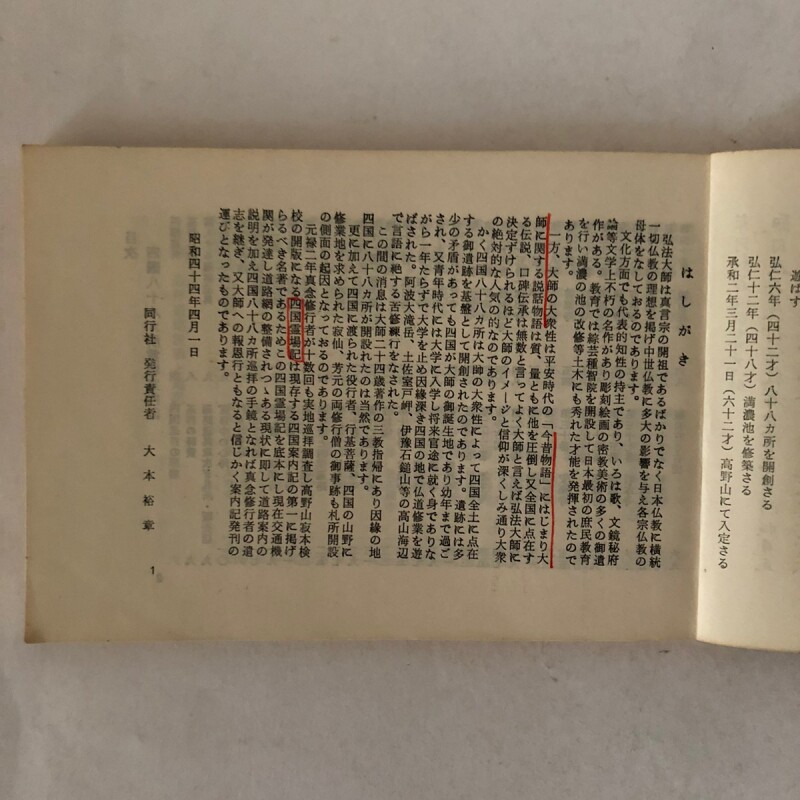 遊ばす
弘仁六年（四十二才）八十八カ所を開創さる
弘仁十二年（四十八才）満濃池を修築さる
承和二年三月二十一日（六十二才）高野山にて入定さる
はしがき
弘法大師は真言宗の開祖であるばかりでなく日本仏教に横統
一切仏教の理想を掲げ中世仏教に多大の影響を与え各宗仏教の
母体をなしておるのであります。
文化方面でも代表的知性の持主であり、いろは歌、文鏡秘府
論等文学上不朽の名作があり彫刻絵画の密教美術の多くの御遺
作がある。教育では綜芸種智院を開設して日本最初の庶民教育
を行い満濃の池の改修等土木にも秀れた才能を発揮されたので
あります。
一方、大師の大衆性は平安時代の「今昔物語」にはじまり大
師に関する説話物語は質、量ともに他を圧倒し又全国に点在す
る伝説、口碑伝承は無数と言ってよく大師と言えば弘法大師に
決定ずけられるほど大師のイメージと信仰が深くしみ通り大衆
の絶対的な人気の的なのであります。
かく四国八十八カ所は大師の大衆性によって四国全土に点在
する御遺跡を基盤として開創されたのであります。遺跡には多
少の矛盾があっても四国が大師の御誕生地であり幼年まで過ご
され、又青年時代には大学に入学し将来官途に就く身でありな
がら一年たらずで大学を止め因縁深き四国の地で仏道修業を遊
ばされた。阿波大滝岳、土佐室戸岬、伊豫石鎚山等の高山海辺
で言語に絶する苦修練行をなされた。
この間の消息は大師二十四歳著作の三教指帰にあり因縁の地
四国に八十八カ所が開設されたのは当然であります。
更に加えて四国に渡られた役行者、行基菩薩、四国の山野に
修業地を求められた寂仙、芳元の両修行僧の御事跡も札所開設
の側面の起因となっておるのであります。
元禄二年真念修行者が十数回も実地巡拝調査し高野山寂本検
校の開版になる四国霊場記は現存する四国案内記の第一に掲げ
らるべき名著であるためこの四国霊場記を底本にし現在交通機
関が発達し道路網の整備されつゝある現状に即して道路案内の
説明を加え四国八十八カ所巡拝の手鏡となれば真念修行者の遺
志を継ぎ、又大師への報恩行ともなると信じかく案内記発刊の
運びとなったものであります。
昭和四十四年四月一日
同行社　発行責任者　大本裕章
1